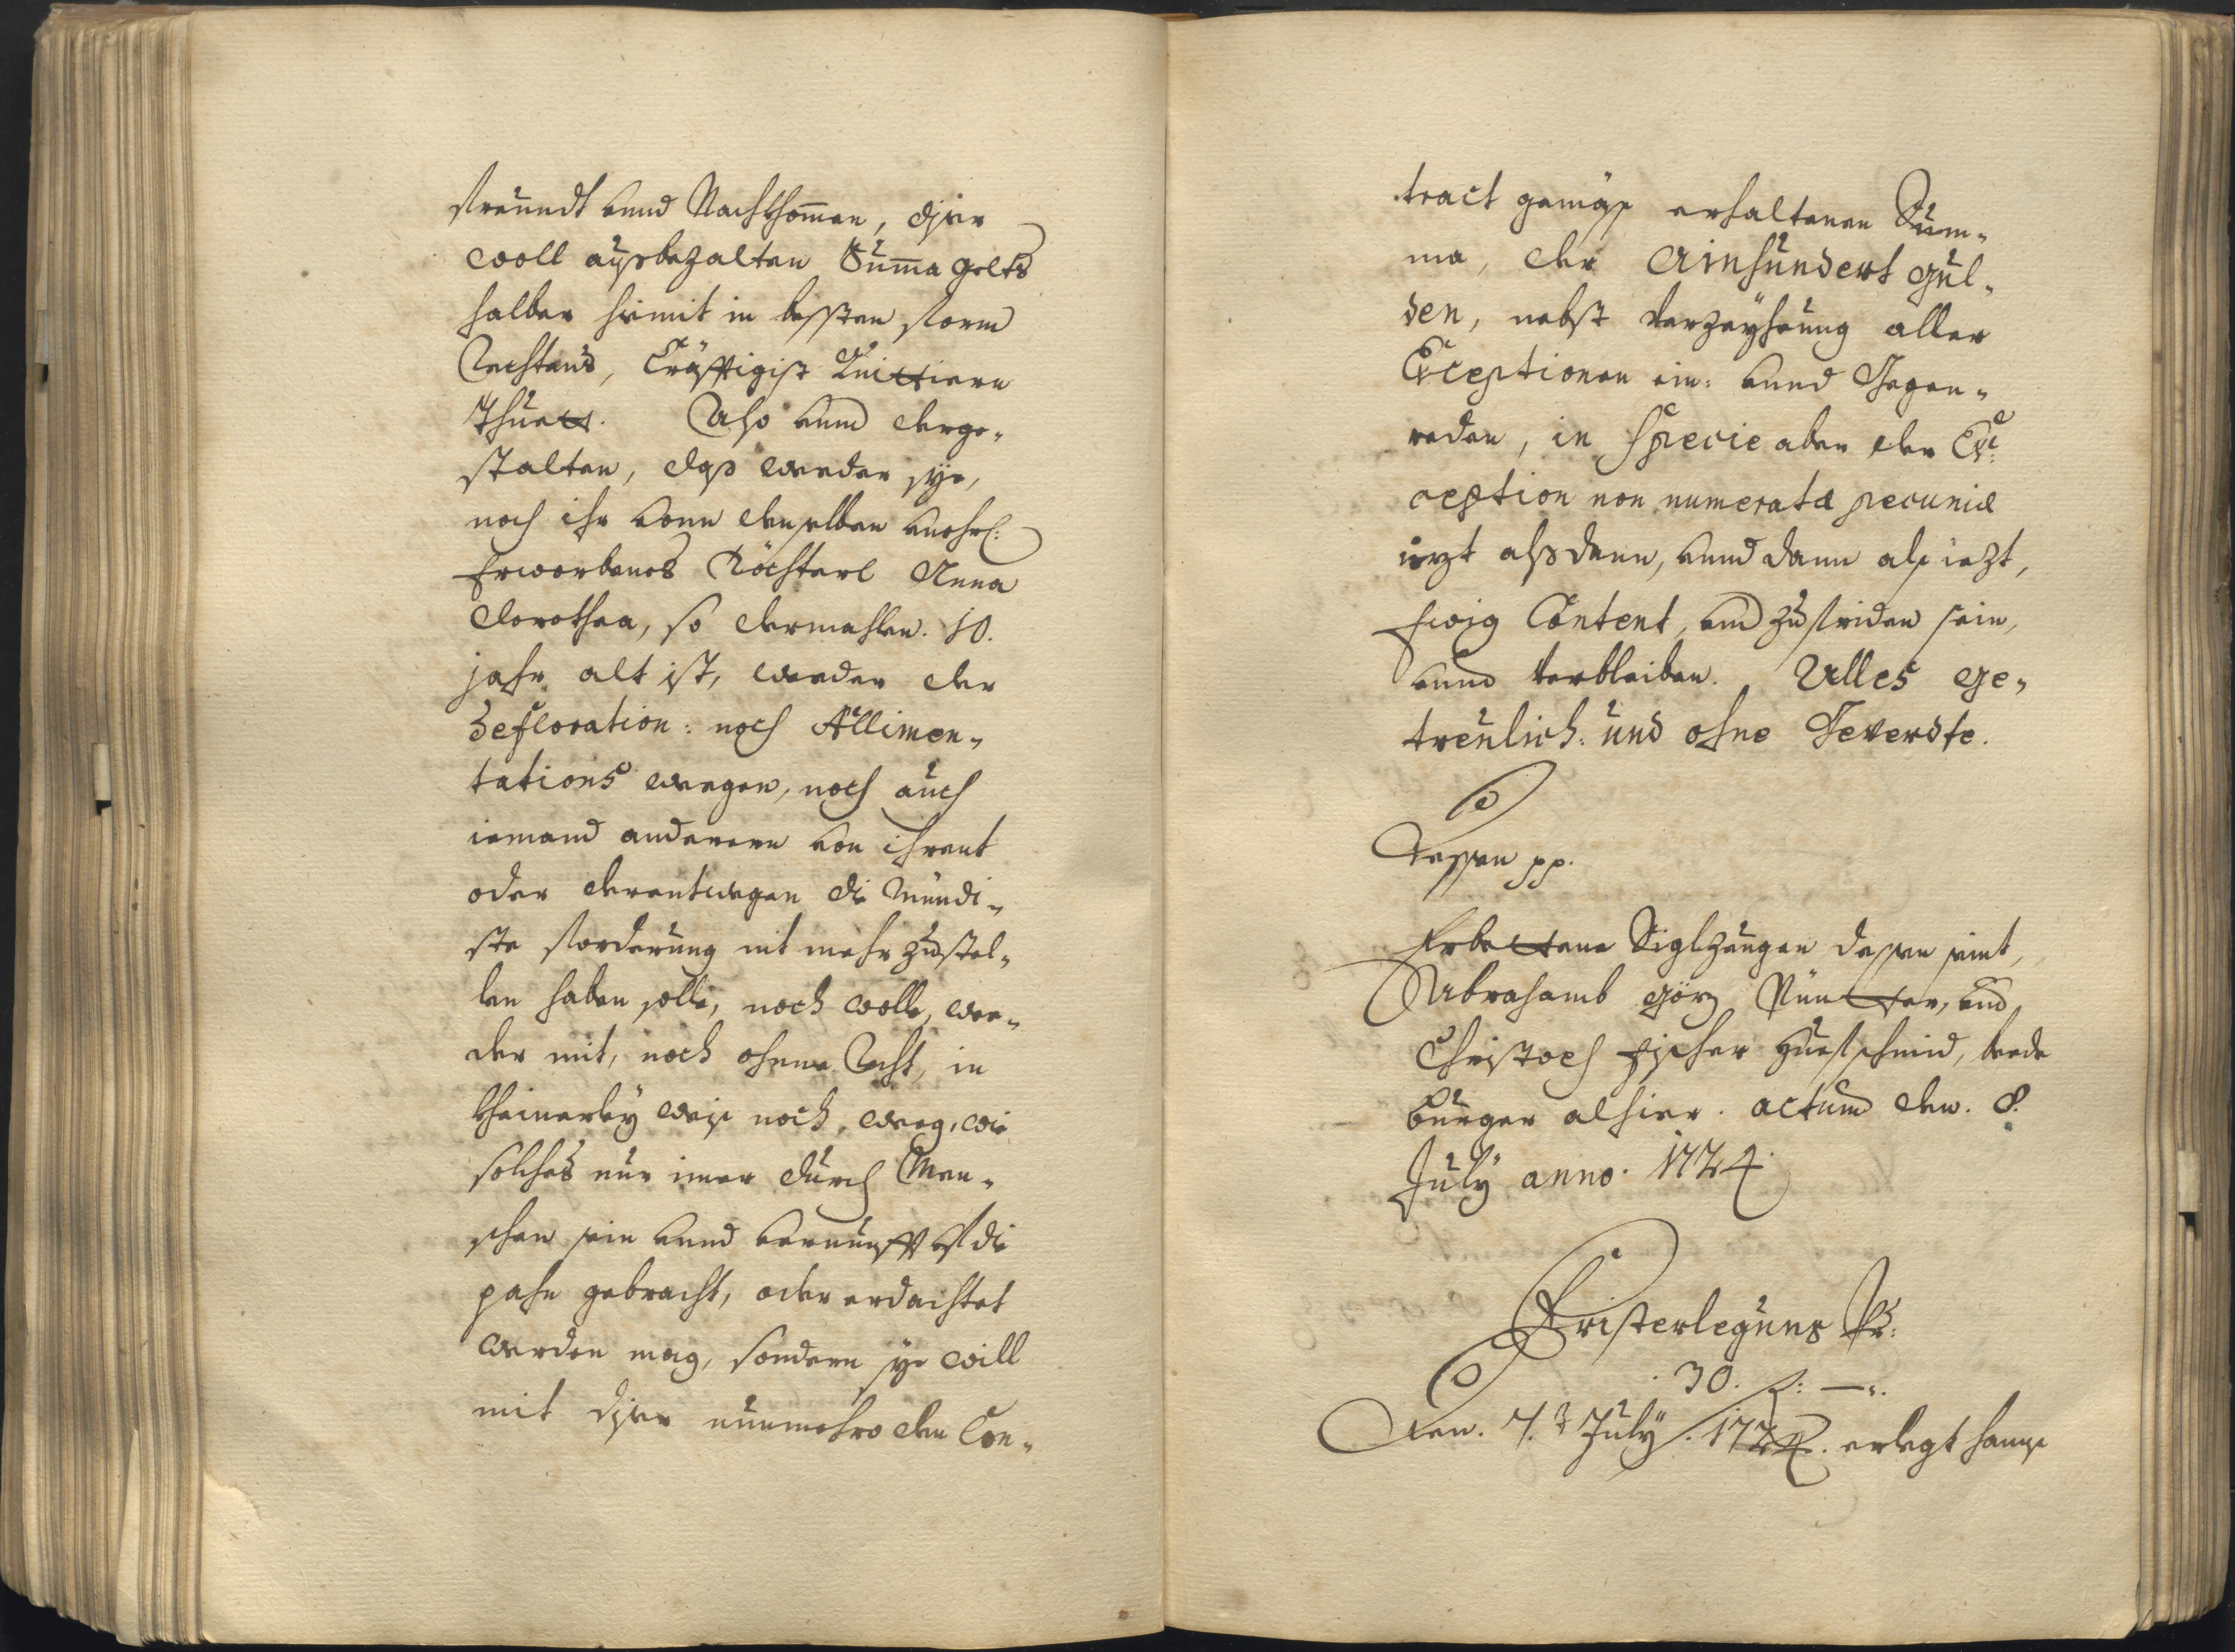 freundt vnnd Nachkhommen, diser
woll außbezalten Summa gelts
halber hiemit in bessten form
Rechtens, Cräfftigist Quittiern
thuett. Also vnnd derge-
stalten, daß weeder sye,
noch ihr vonn demselben vnehrl:
Erworbenes Töchterl Anna
dorothea, so dermahlen. 10.
jahr alt ist, weeder der
defloration: noch Allimen-
tations wegen, noch auch
iemand anderem von ihrent
oder derentwegen die mündi-
ste forderung nit mehr zustel-
len haben solle, noch wolle, wee-
der mit, noch ohnne Recht, in
kheinerley weiß noch, weeg, wie
solches nur imer durch Men-
schen sin vnnd vernunfft vf die
pahn gebracht, oder erdachtet
werden mag, sondern sye will
mit diser nunmehro dem Con-
tract gemäß erhaltenen Sum-
ma, der Ainhundert gul-
den, nebst verzeyhung aller
Exceptionen ein: vnnd Gegen-
reden, in specie aber der Ex-
ception non numeratæ pecuniæ
iezt alß dann, vnnd dann alß iezt,
Ewig Content, vnd zufriden sein,
vnnd verbleiben. Alles ge-
treulich: und ohne Geverdte.
Dessen pp.
Erbettene Siglzeugen dessen seint,
Abrahamb görg Müntzer, vnd
Christoph Fischer huefschmid, beede
burger alhier. actum den. 8.
July anno. 1724.
Fristerlegung Pr:
30. f: —.
Den. 7. July. 1724. erlegt hannß